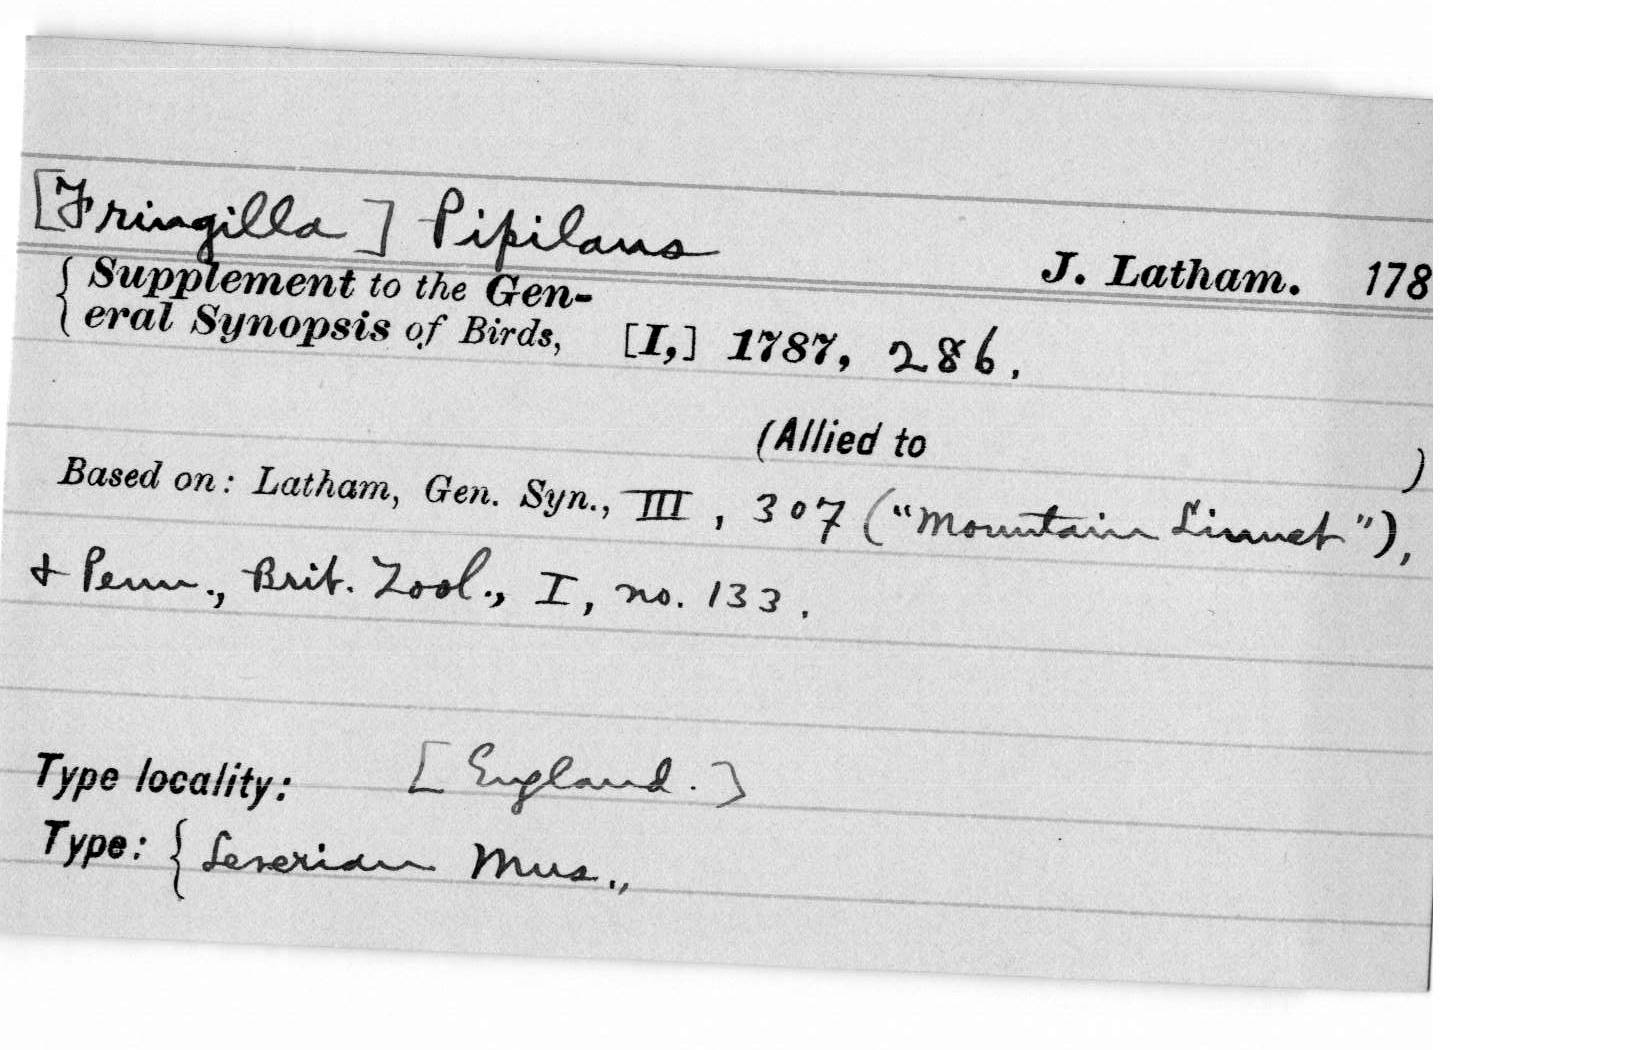 [Fringilla] Pipilans
J. Latham. 178
{Supplement to the Gen-
eral Synopsis of Birds, [I,] 1787, 286.
(Allied to )
Based on: Latham, Gen. Syn., III, 307 ("Mountain Linnet"),
+ Penn., Brit. Zool., I, no. 133.
Type locality: [England.]
Type: { Leverian Mus.,